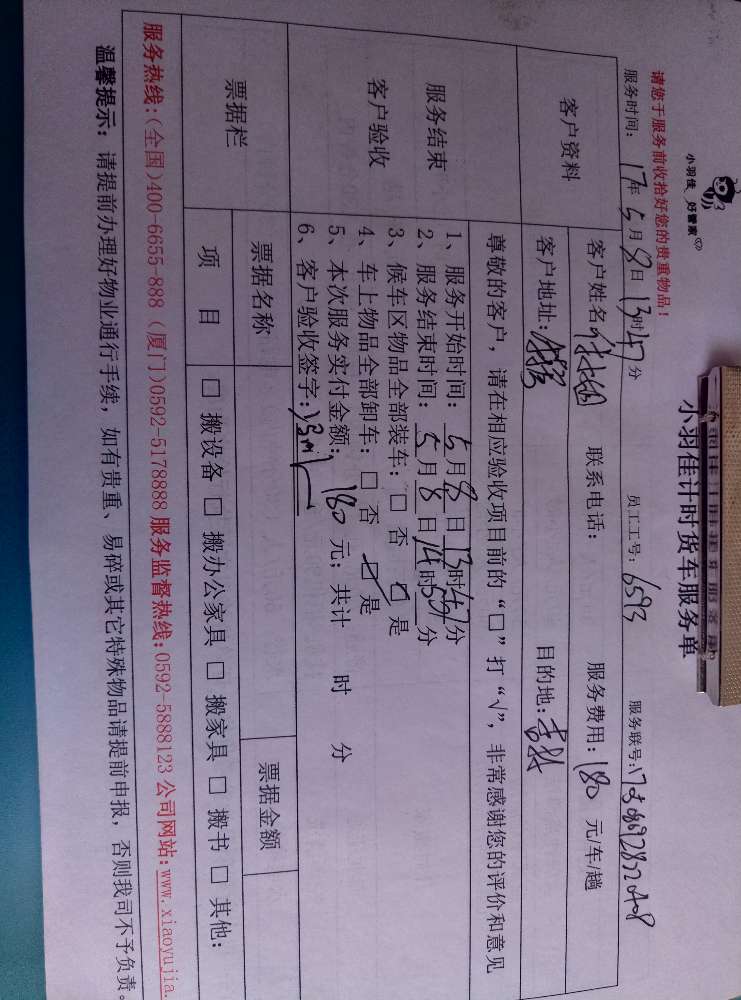 小羽佳 好管家
小羽佳计时货车服务单
请您于服务前收拾好您的贵重物品！
服务时间： 17年 5月 8日 13时47分 员工工号： 6593 服务联号：
客户资料
客户姓名 联系电话： 服务费用：180 元/车/趟
客户地址： 目的地：
尊敬的客户，请在相应验收项目前的“□”打“√”，非常感谢您的评价和意见
服务结束
客户验收
1、服务开始时间：5月8日13时47分
2、服务结束时间：5月8日14时 分
3、候车区物品全部装车：□ 否 □ 是
4、车上物品全部卸车：□ 否 □ 是
5、本次服务实付金额：180 元；共计 时 分
6、客户验收签字：
票据栏
票据名称 票据金额
项 目 □ 搬设备 □ 搬办公家具 □ 搬家具 □ 搬书 □ 其他：
服务热线：(全国)400-6655-888（厦门)0592-5178888 服务监督热线：0592-5888123 公司网站：www.xiaoyujia.
温馨提示：请提前办理好物业通行手续，如有贵重、易碎或其它特殊物品请提前申报，否则我司不予负责。